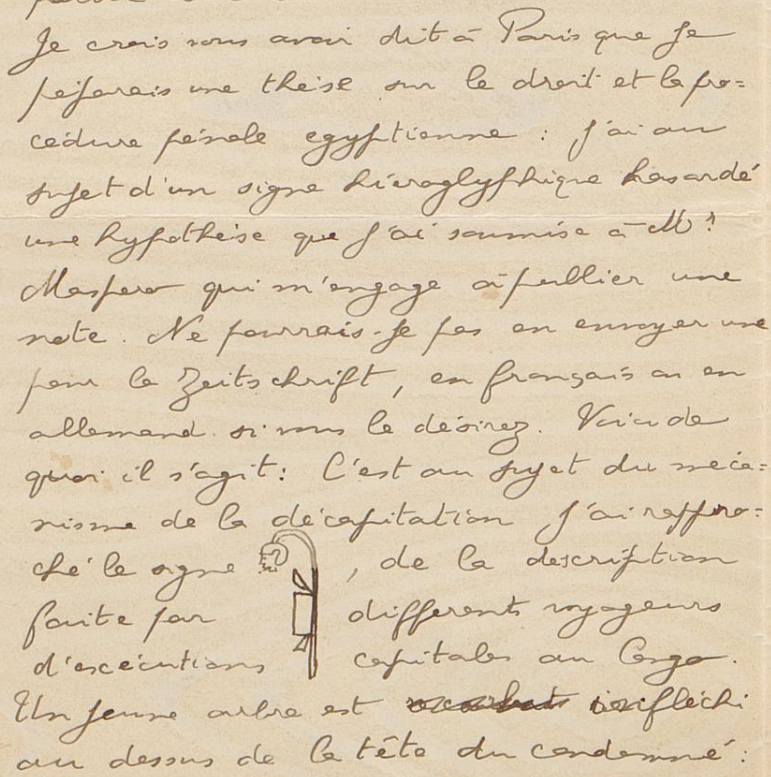 Je crois vous avoir dit à Paris que je
préparais une thèse sur le droit et la pro=
cédure pénale egyptienne : j'ai au
sujet d'un signe hiéroglyphique hasardé
une hypothèse que j'ai soumise à Mr
Maspero qui m'engage à publier une
note. Ne pourrais-je pas en envoyer une
pour la Zeitschrift, en français ou en
allemand si vous le désirez. Voici de
quoi il s'agit : C'est au sujet du méca=
nisme de la décapitation j'ai rappro=
ché le signe , de la description
faite par différents voyageurs
d'exécutions capitales au Congo.
Un jeune arbre est infléchi
au dessus de la tête du condamné :